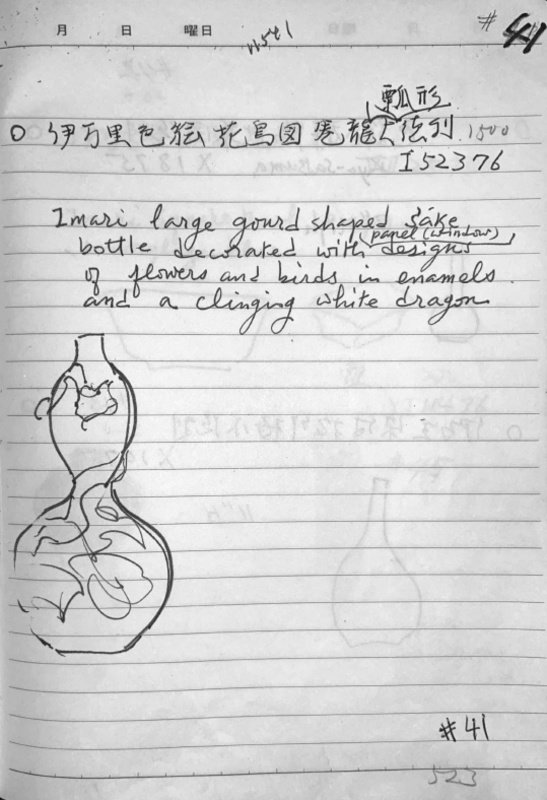 月 日 曜日
# 41
瓢形
○ 伊万里色絵花鳥図巻龍大徳利 1500
I52376
Imari large gourd shaped sake
panel (window)
bottle decorated with designs
of flowers and birds in enamels.
and a clinging white dragon
#41
523